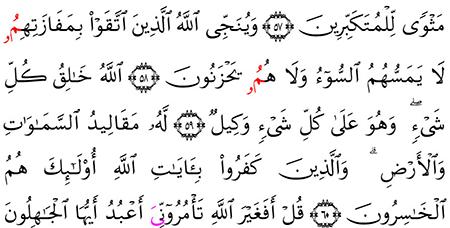 مَثْوًى لِّلْمُتَكَبِّرِينَ ٥٧ وَيُنَجِّى ٱللَّهُ ٱلَّذِينَ ٱتَّقَوْا۟ بِمَفَازَتِهِمُۥ
لَا يَمَسُّهُمُ ٱلسُّوٓءُ وَلَا هُمُۥ يَحْزَنُونَ ٥٨ ٱللَّهُ خَٰلِقُ كُلِّ
شَىْءٍۖ وَهُوَ عَلَىٰ كُلِّ شَىْءٍ وَكِيلٌ ٥٩ لَّهُۥ مَقَالِيدُ ٱلسَّمَٰوَٰتِ
وَٱلْأَرْضِۗ وَٱلَّذِينَ كَفَرُوا۟ بِـَٔايَٰتِ ٱللَّهِ أُو۟لَٰٓئِكَ هُمُ
ٱلْخَٰسِرُونَ ٦٠ قُلْ أَفَغَيْرَ ٱللَّهِ تَأْمُرُوٓنِّىَ أَعْبُدُ أَيُّهَا ٱلْجَٰهِلُونَ